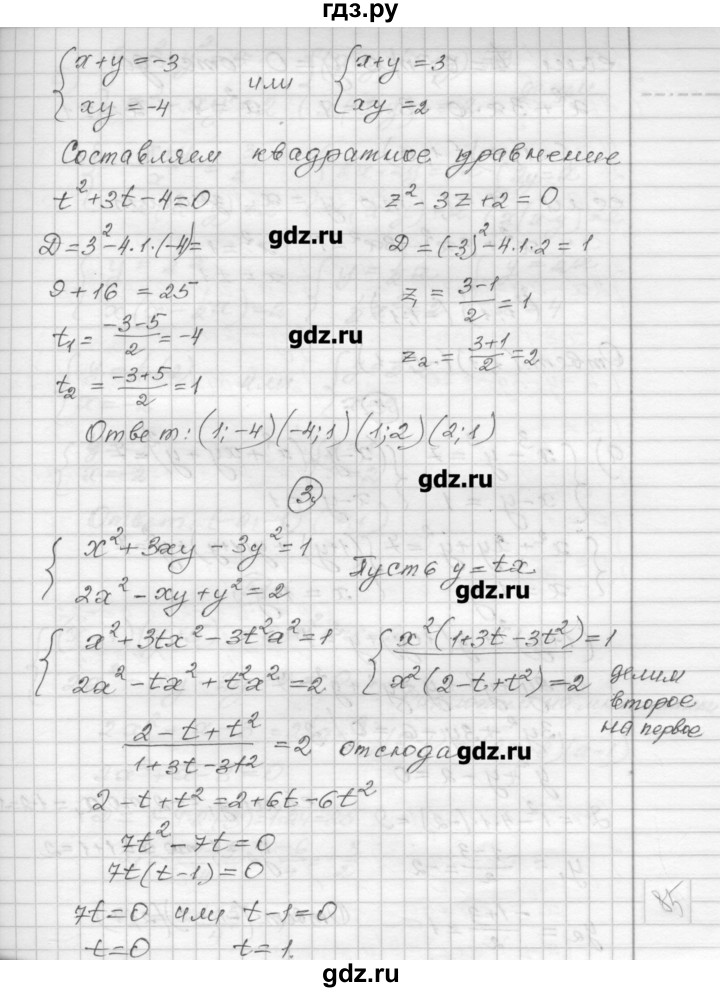 гдз.ру
{ x+y=-3 или { x+y=3
{ xy=-4 { xy=2
Составляем квадратное уравнение
t²+3t-4=0 z²-3z+2=0
D=3²-4·1·(-4)= gdz.ru D=(-3)²-4·1·2=1
9+16=25 z₁=(3-1)/2=1
t₁=(-3-5)/2=-4 gdz.ru z₂=(3+1)/2=2
t₂=(-3+5)/2=1
Ответ: (1;-4)(-4;1)(1;2)(2;1)
gdz.ru
3.
{ x²+3xy-3y²=1 Пусть y=tx
{ 2x²-xy+y²=2 gdz.ru
{ x²+3tx²-3t²x²=1 { x²(1+3t-3t²)=1
{ 2x²-tx²+t²x²=2 { x²(2-t+t²)=2 делим
второе
на первое
(2-t+t²)/(1+3t-3t²)=2 отсюда gdz.ru
2-t+t²=2+6t-6t²
7t²-7t=0
7t(t-1)=0
7t=0 или t-1=0
85
t=0 t=1.
gdz.ru